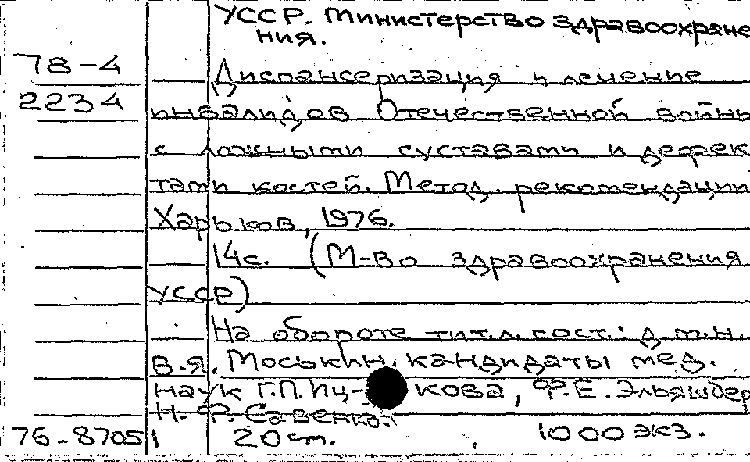 УССР. Министерство здравоохране
ния.
78-4
Диспансеризация и лечение
2234
инвалидов Отечественной войны
с ложными суставами и дефек
тами костей. Метод. рекомендации
Харьков, 1976.
14с. (М-во здравоохранения
УССР)
На обороте тит.л. сост.: д.м.н.
В.Я. Моськин, кандидаты мед.
наук Г.П. Иц- кова, Ф.Е. Эльяшбер
Н.Ф. Савенко.
76-87051 20 ст. 1000 экз.